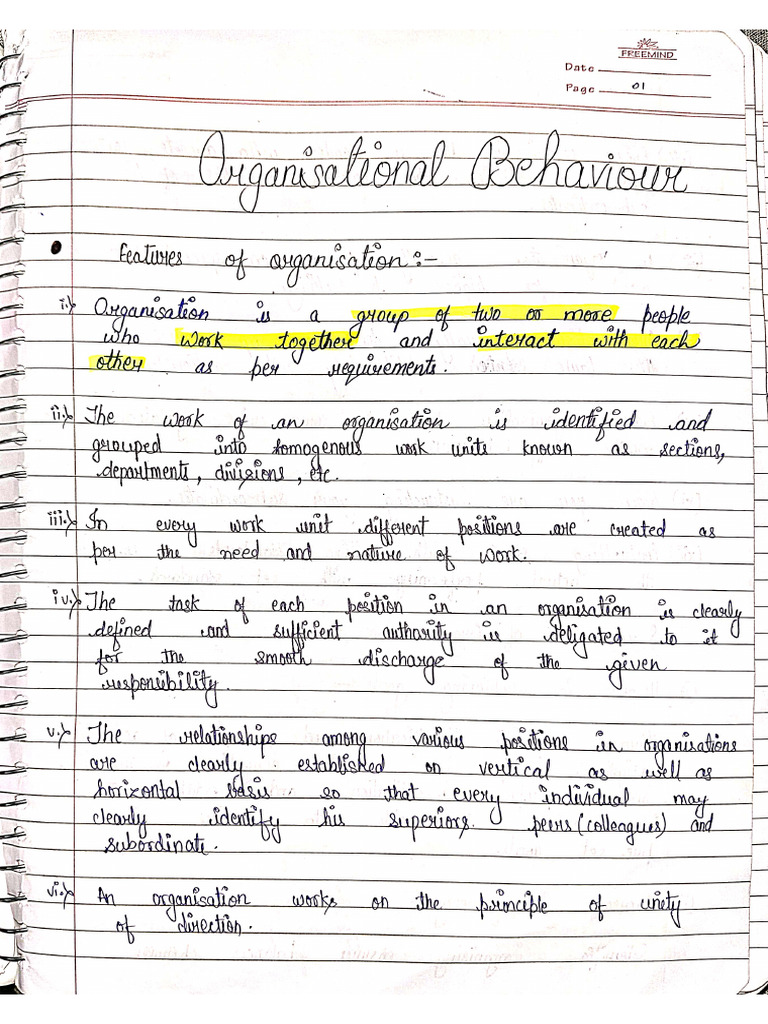 FREEMIND
Date
Page 01
Organisational Behaviour
• Features of organisation:-
i.) Organisation is a group of two or more people
who work together and interact with each
other as per requirements.
ii.) The work of an organisation is identified and
grouped into homogenous work units known as sections,
departments, divisions, etc.
iii.) In every work unit different positions are created as
per the need and nature of work.
iv.) The task of each position in an organisation is clearly
defined and sufficient authority is deligated to it
for the smooth discharge of the given
responsibility.
v.) The relationships among various positions in organisations
are clearly established on vertical as well as
horizontal basis so that every individual may
clearly identify his superiors, peers (colleagues) and
subordinate.
vi.) An organisation works on the principle of unity
of direction.